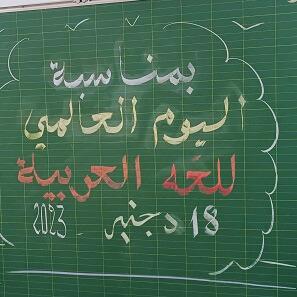 بمناسبة
اليوم العالمي
للغة العربية
18 دجنبر 2023